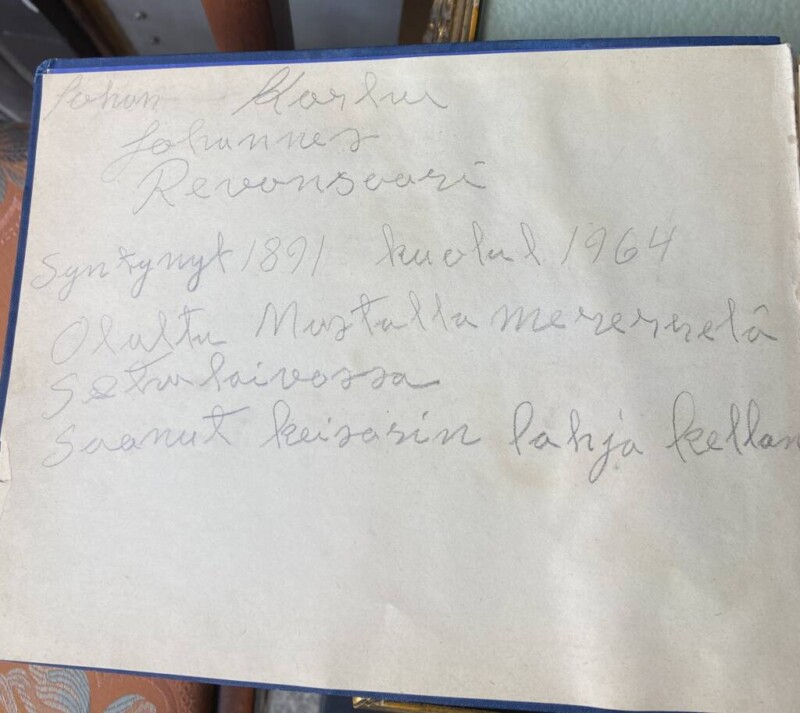 Johan Kaslur
Johannes
Revonsaari
Syntynyt 1891 kuolul 1964
Olultu Mustalla merersselä
Sotu laivossa
Saanut keisarin lahja kellan